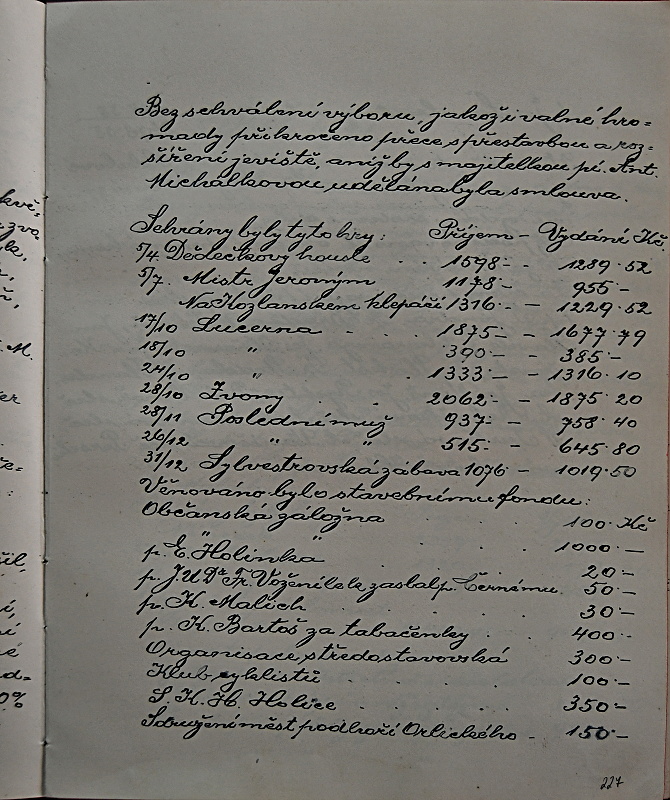 Bez schválení výboru, jakož i valné hro-
mady přikročeno přece s přestavbou a roz-
šíření jeviště, aniž by s majitelkou pí. Ant.
Michálkovou udělána byla smlouva.
Sehrány byly tyto hry: Příjem - Vydání Kč.
5/4. Dědečkovy housle . . 1598·- - 1289·52
5/7. Mistr Jeroným 1178·- - 955·-
Na Kozlanském klepáči 1316·- - 1229·52
17/10 Lucerna . . . 1875·- - 1677·79
18/10 " 390·- - 385·-
24/10 " 1333·- - 1316·10
28/10 Zvony . . . 2062·- - 1875·20
28/11 Poslední muž 937·- - 758·40
26/12 " " 515·- - 645·80
31/12 Sylvestrovská zábava 1076·- - 1019·50
Věnováno bylo stavebnímu fondu:
Občanská záložna . . . 100·Kč
" " . . . 1000·-
p. E. Holinka . . . 20·-
p. J.U.Dr Fr. Voženílek zaslal p. Černému. 50·-
p. K. Malich . . . 30·-
p. K. Bartoš za tabačenky . . 400·-
Organisace středostavovská 300·-
Klub cyklistů . . . 100·-
S. K. H. Holice . . . 350·-
Sdružení měst podhoří Orlického - 150·-
227